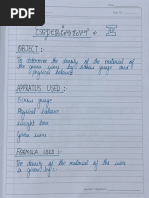 Experiment :- I
OBJECT :-
To determine the density of the material of
the given wire by screw gauge and
a physical balance.
APPARATUS USED :-
Screw gauge
Physical balance
Weight box
Given wire
FORMULA USED :-
The density of the material of the wire
is given by :-